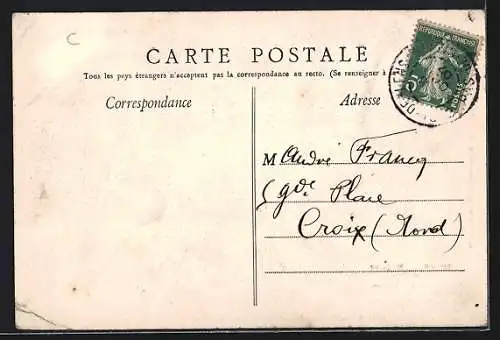 C
CARTE POSTALE
Tous les pays étrangers n'acceptent pas la correspondance au recto. (Se renseigner à
Correspondance
Adresse
REPUBLIQUE FRANÇAISE
5
POSTES
M André Francq
gde Place
Croix (Nord)